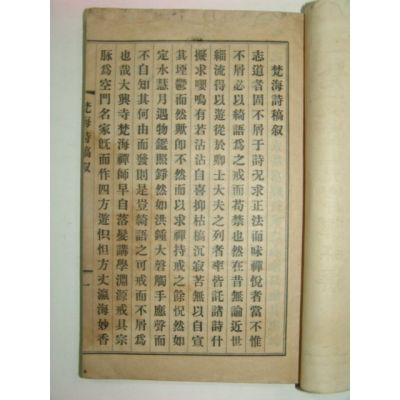 梵海詩稿叙
志道者固不屑于詩况求正法而味禪悅者當不惟
不屑必以綺語爲之戒而荀禁也然在昔無論近世
緇流得以遊從於卿士大夫之列者率皆託諸詩什
擬求嚶鳴有若沾沾自喜抑枯槁沉寂苦無以自宣
其堙鬱而然歟卽不然而以求禪持戒之餘怳然如
定水慧月遇物鑑照錚然如洪鍾大磬觸手應聲而
不自知其何由而發則是豈綺語之可戒而不屑爲
也哉大興寺梵海禪師早自落髮講學淵源戒具宗
脉爲空門名家旣而作四方遊但怛方丈瀛海妙香
梵海詩稿叙
一